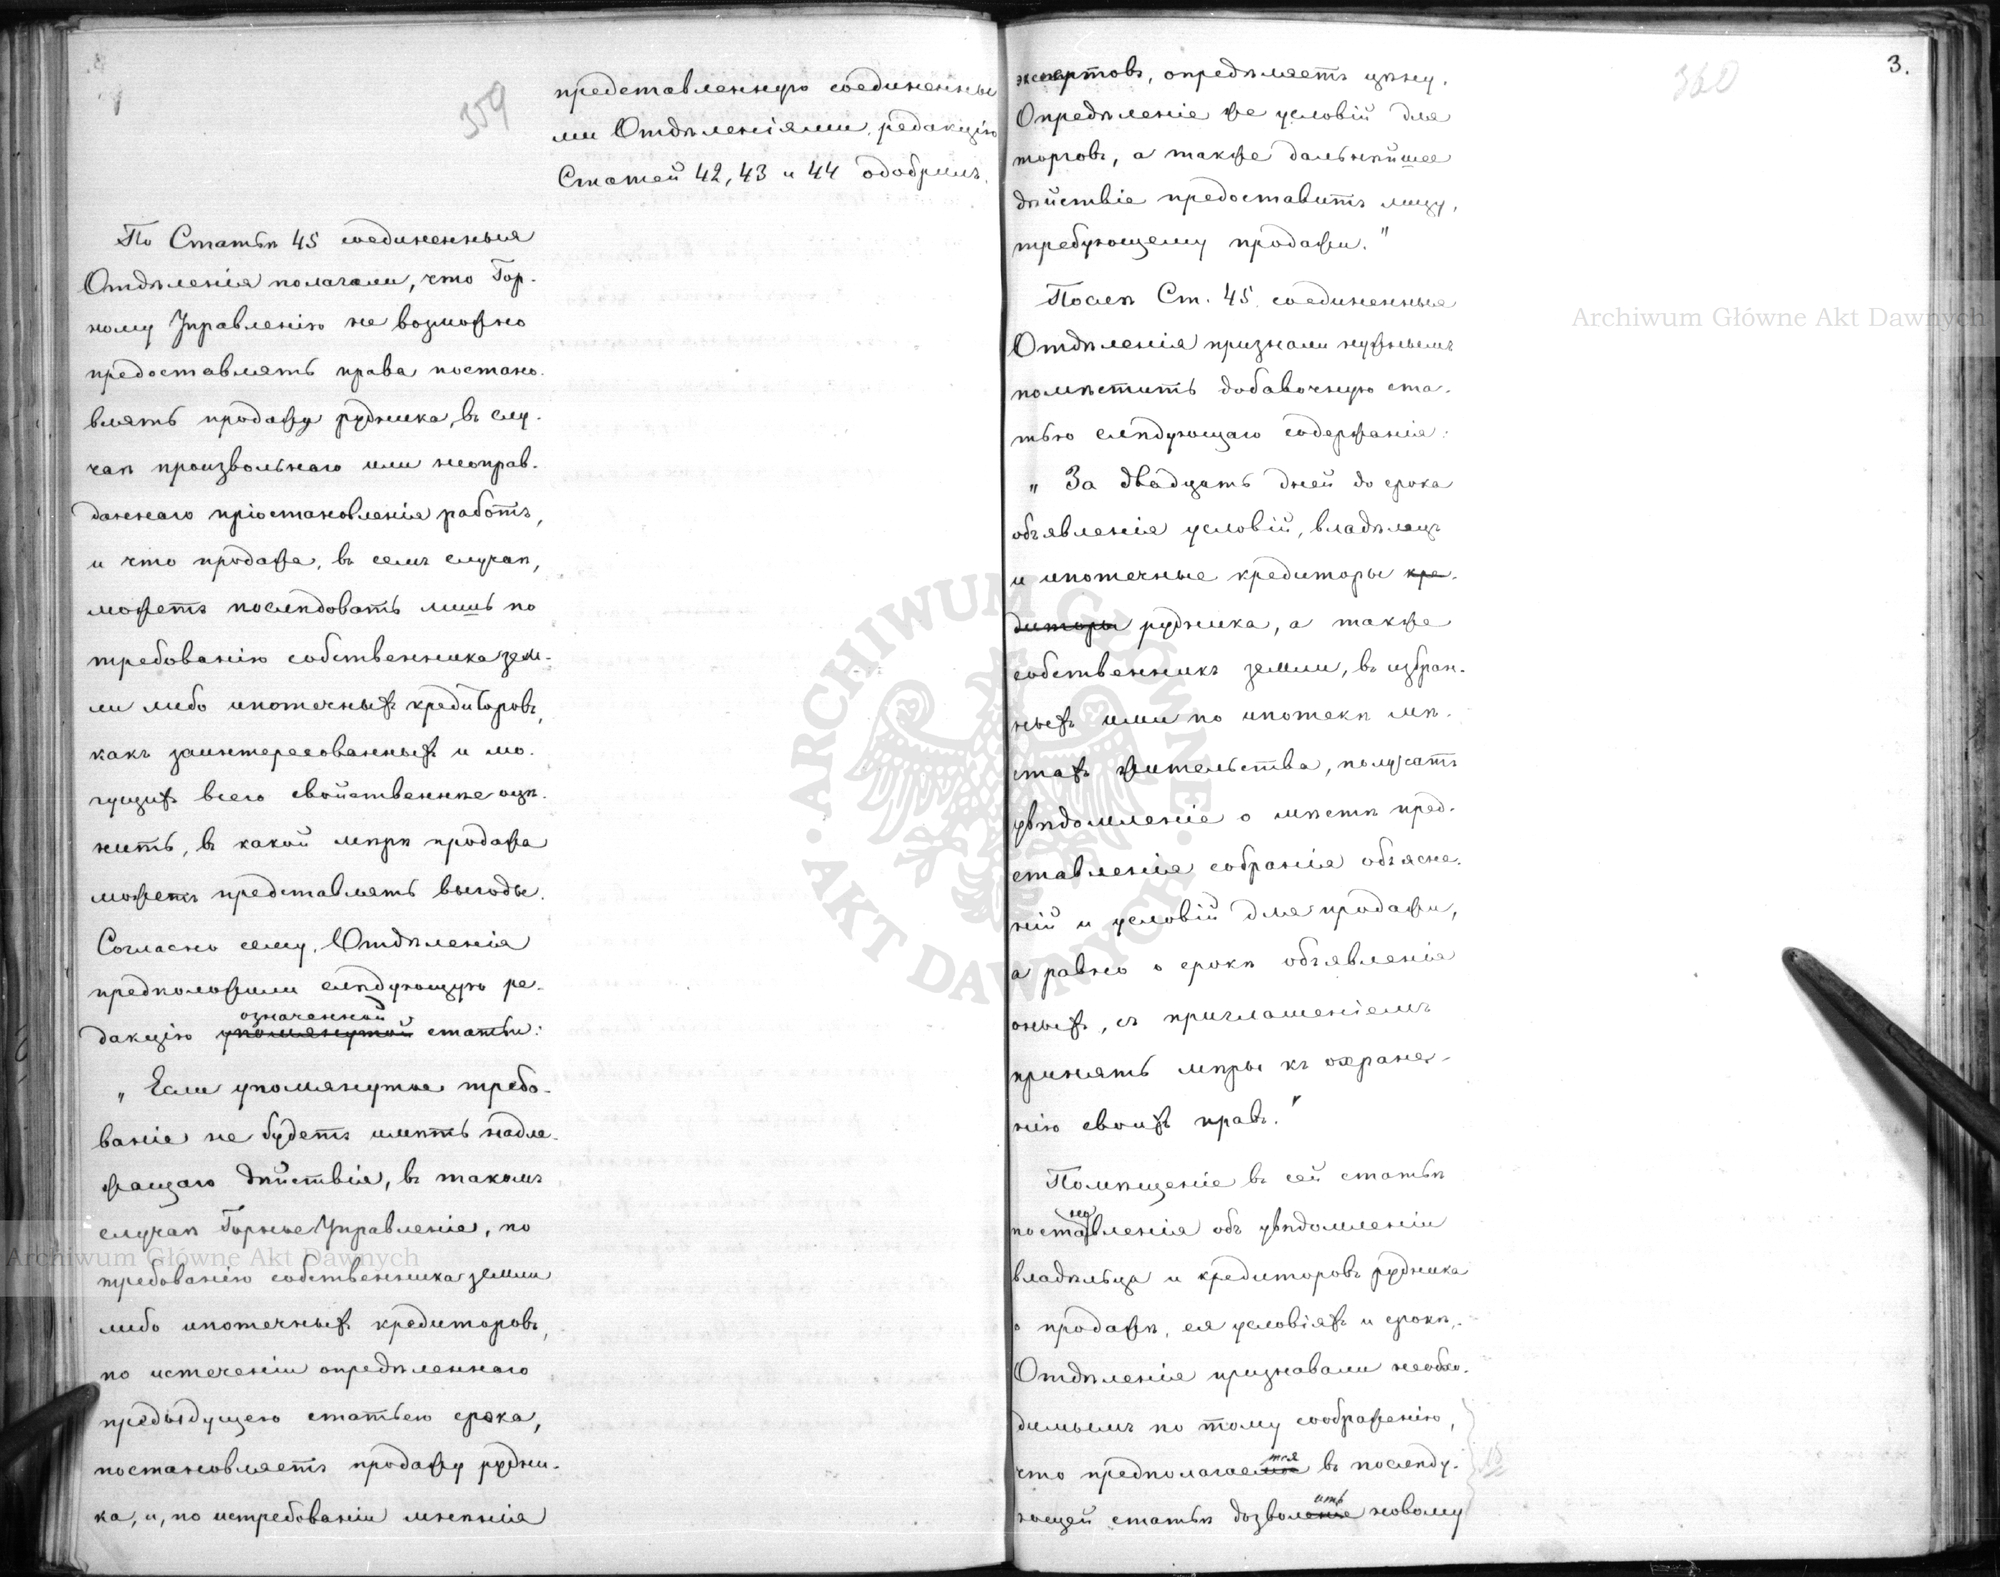 359
представленную соединенны
ми Отдѣленіями, редакцію
Статей 42, 43 и 44 одобрилъ.
По Статьѣ 45 соединенныя
Отдѣленія полагали, что Гор-
ному Управленію не возможно
предоставлять права постано-
влять продажу рудника, въ слу-
чаѣ произвольнаго или неоправ-
даннаго пріостановленія работъ,
и что продажа, въ семъ случаѣ,
можетъ послѣдовать лишь по
требованію собственника зем-
ли либо ипотечныхъ кредиторовъ,
какъ заинтересованныхъ и мо-
гущихъ всего свойственнѣе оцѣ-
нить, въ какой мѣрѣ продажа
можетъ представлять выгоды.
Согласно сему, Отдѣленія
предположили слѣдующую ре-
означенной
дакцію упомянутой статьи:
„Если упомянутое требо-
ваніе не будетъ имѣть надле-
жащаго дѣйствія, въ такомъ
случаѣ Горное Управленіе, по
требованію собственника земли
либо ипотечныхъ кредиторовъ,
по истеченіи опредѣленнаго
предыдущею статьею срока,
постановляетъ продажу рудни-
ка, и, по истребованіи мнѣнія
360
3.
экспертовъ, опредѣляетъ цѣну.
Опредѣленіе же условій для
торговъ, а также дальнѣйшее
дѣйствіе предоставитъ лицу,
требующему продажи."
Послѣ Ст. 45. соединенныя
Отдѣленія признали нужнымъ
помѣстить добавочную ста-
тью слѣдующаго содержанія:
„За двадцать дней до срока
объявленія условій, владѣлецъ
и ипотечные кредиторы кре-
диторы рудника, а также
собственникъ земли, въ избран-
ныхъ ими по ипотекѣ мѣ-
стахъ жительства, получатъ
увѣдомленіе о мѣстѣ пред-
ставленія собранія объясне-
ній и условій для продажи,
а равно о срокѣ объявленія
оныхъ, съ приглашеніемъ
принять мѣры къ охране-
нію своихъ правъ."
Помѣщеніе въ сей статьѣ
но
поставленія объ увѣдомленіи
владѣльца и кредиторовъ рудника
о продажѣ, ея условіяхъ и срокѣ,
Отдѣленія признавали необхо-
димымъ по тому соображенію,
тся
что предполагаемое въ послѣду-
ить
ющей статьѣ дозволеніе новому
Archiwum Główne Akt Dawnych
Archiwum Główne Akt Dawnych
ARCHIWUM GŁÓWNE AKT DAWNYCH